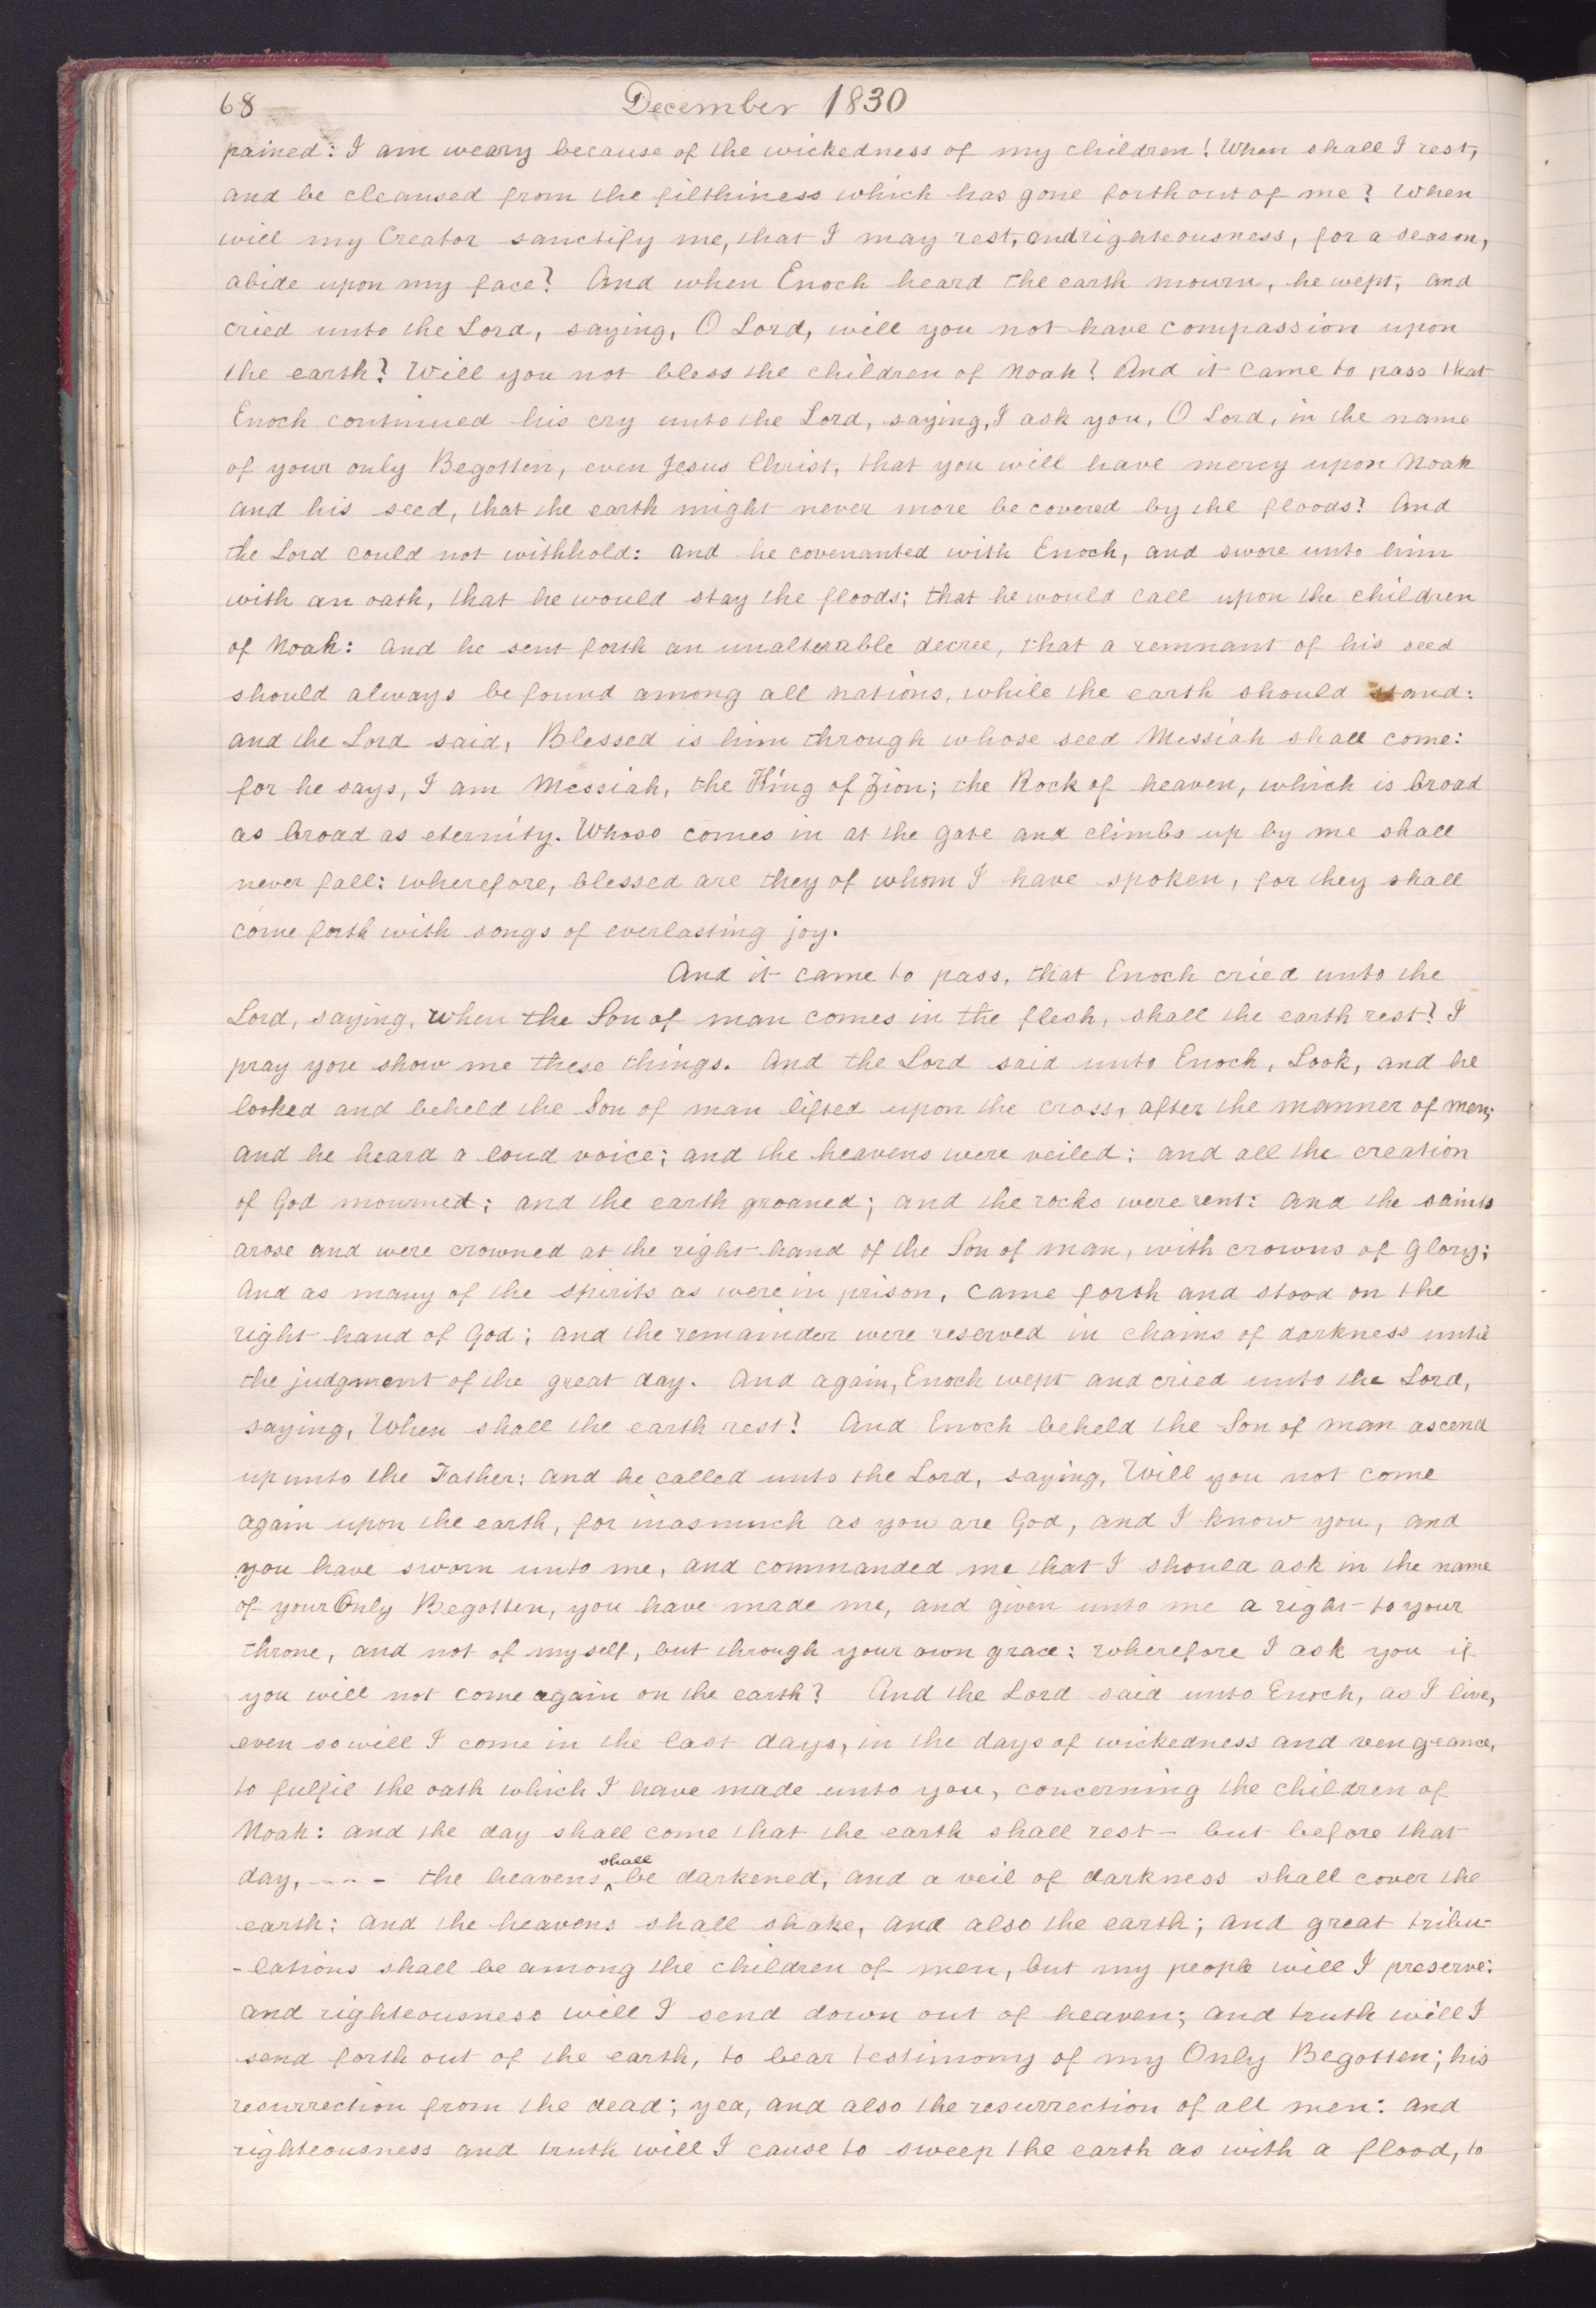 68
December 1830
pained: I am weary because of the wickedness of my children! When shall I rest,
and be cleansed from the filthiness which has gone forth out of me? When
will my Creator sanctify me, that I may rest, and righteousness, for a season,
abide upon my face? And when Enoch heard the earth mourn, he wept, and
cried unto the Lord, saying, O Lord, will you not have compassion upon
the earth? Will you not bless the children of Noah? And it came to pass that
Enoch continued his cry unto the Lord, saying, I ask you, O Lord, in the name
of your only Begotten, even Jesus Christ, that you will have mercy upon Noah
and his seed, that the earth might never more be covered by the floods? And
the Lord could not withhold: and he covenanted with Enoch, and swore unto him
with an oath, that he would stay the floods; that he would call upon the children
of Noah: and he sent forth an unalterable decree, that a remnant of his seed
should always be found among all nations, while the earth should stand:
and the Lord said, Blessed is him through whose seed Messiah shall come:
for he says, I am Messiah, the King of Zion; the Rock of heaven, which is broad
as broad as eternity. Whoso comes in at the gate and climbs up by me shall
never fall: wherefore, blessed are they of whom I have spoken, for they shall
come forth with songs of everlasting joy.
And it came to pass, that Enoch cried unto the
Lord, saying, when the Son of man comes in the flesh, shall the earth rest? I
pray you show me these things. And the Lord said unto Enoch, Look, and he
looked and beheld the Son of man lifted upon the cross, after the manner of men;
and he heard a loud voice; and the heavens were veiled; and all the creation
of God mourned; and the earth groaned; and the rocks were rent: and the saints
arose and were crowned at the right hand of the Son of man, with crowns of glory;
And as many of the spirits as were in prison, came forth and stood on the
right hand of God; and the remainder were reserved in chains of darkness until
the judgment of the great day. And again, Enoch wept and cried unto the Lord,
saying, When shall the earth rest? And Enoch beheld the Son of man ascend
up unto the Father: and he called unto the Lord, saying, Will you not come
again upon the earth, for inasmuch as you are God, and I know you, and
you have sworn unto me, and commanded me that I should ask in the name
of your Only Begotten, you have made me, and given unto me a right to your
throne, and not of myself, but through your own grace: wherefore I ask you if
you will not come again on the earth? And the Lord said unto Enoch, as I live,
even so will I come in the last days, in the days of wickedness and vengeance,
to fulfil the oath which I have made unto you, concerning the children of
Noah: and the day shall come that the earth shall rest - but before that
day, - - - - the heavens, shall be darkened, and a veil of darkness shall cover the
earth: and the heavens shall shake, and also the earth; and great tribu-
-lations shall be among the children of men, but my people will I preserve:
and righteousness will I send down out of heaven; and truth will I
send forth out of the earth, to bear testimony of my Only Begotten; his
resurrection from the dead; yea, and also the resurrection of all men: and
righteousness and truth will I cause to sweep the earth as with a flood, to